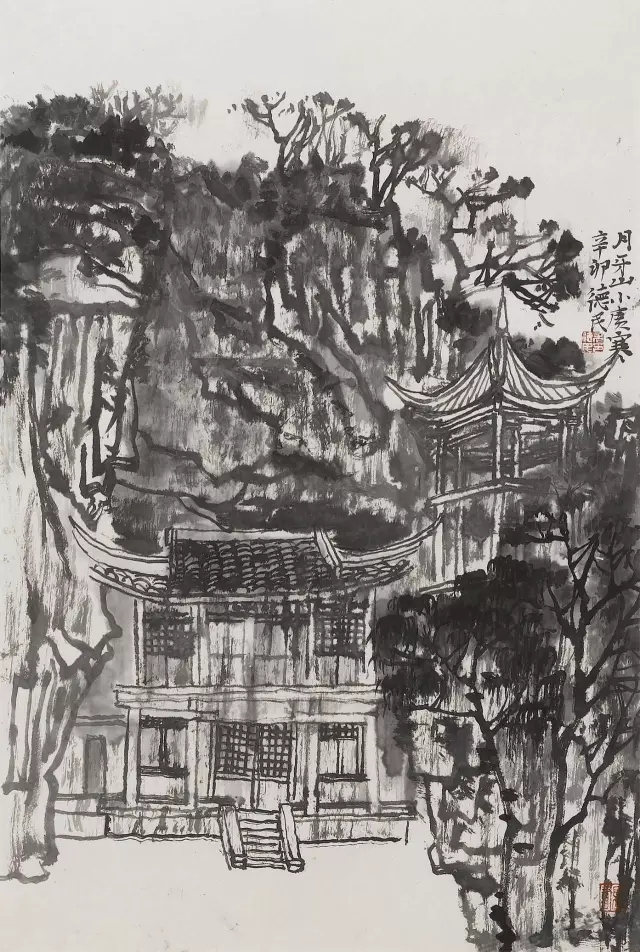 月牙山小廣寒
辛卯德民